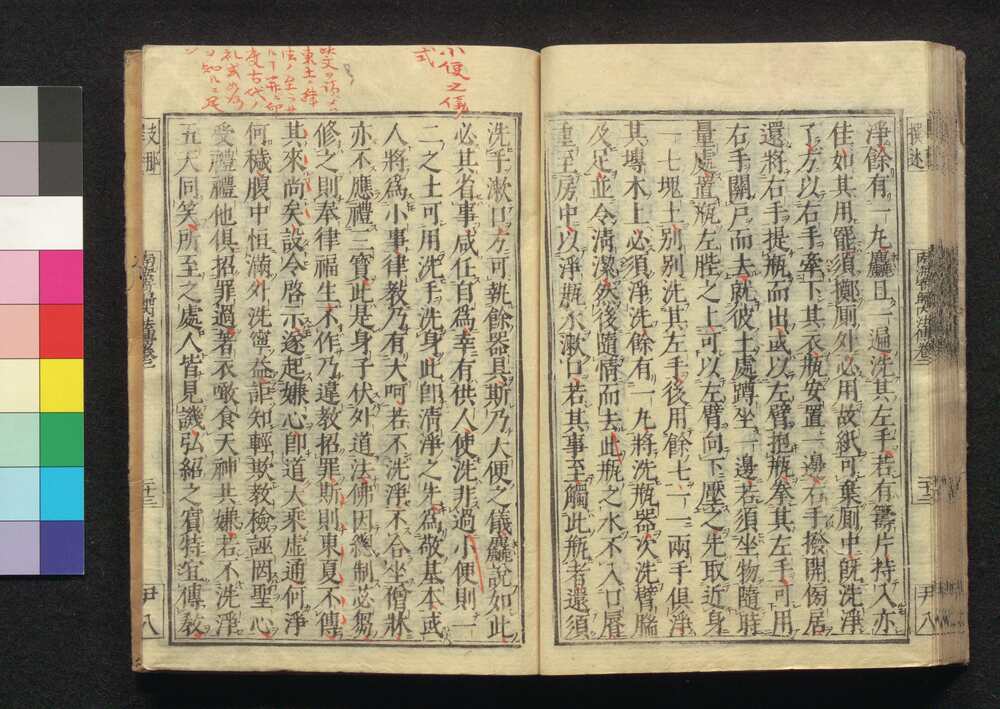 淨餘有一丸麤且一遍洗其左手若有籌片持入亦
佳如其用罷須擲厠外必用故紙可棄厠中旣洗淨
了方以右手牽下其衣瓶安置一邊右手撥開傍居
還將右手提瓶而出或以左臂抱瓶拳其左手可用
右手關戸而去就彼土處蹲坐一邊若須坐物隨時
量處置瓶左䏶之上可以左臂向下壓之先取近身
一七塊土別別洗其左手後用餘七一一兩手俱淨
其塼木上必須淨洗餘有一丸將洗瓶器次洗臂腨
及足並令清潔然後隨情而去此瓶之水不入口脣
重至房中以淨瓶水漱口若其事至觸此瓶者還須
洗手漱口方可執餘器具斯乃大便之儀麤說如此
必其省事咸任自爲幸有供人使洗非過小便則一
二之土可用洗手洗身此卽清淨之先爲敬基本或
人將爲小事律敎乃有大呵若不洗淨不合坐僧牀
亦不應禮三寶此是身子伏外道法佛因總制必芻
修之則奉律福生不作乃違敎招罪斯則東夏不傳
其來尚矣設令啓示遂起嫌心卽道大乘虛通何淨
何穢腹中恒滿外洗寧益詎知輕欺敎檢誣罔聖心
受禮禮他俱招罪過著衣噉食天神共嫌若不洗淨
五天同笑所至之處人皆見譏弘紹之賓特宜傳敎
小便之儀
式
尹八
尹八